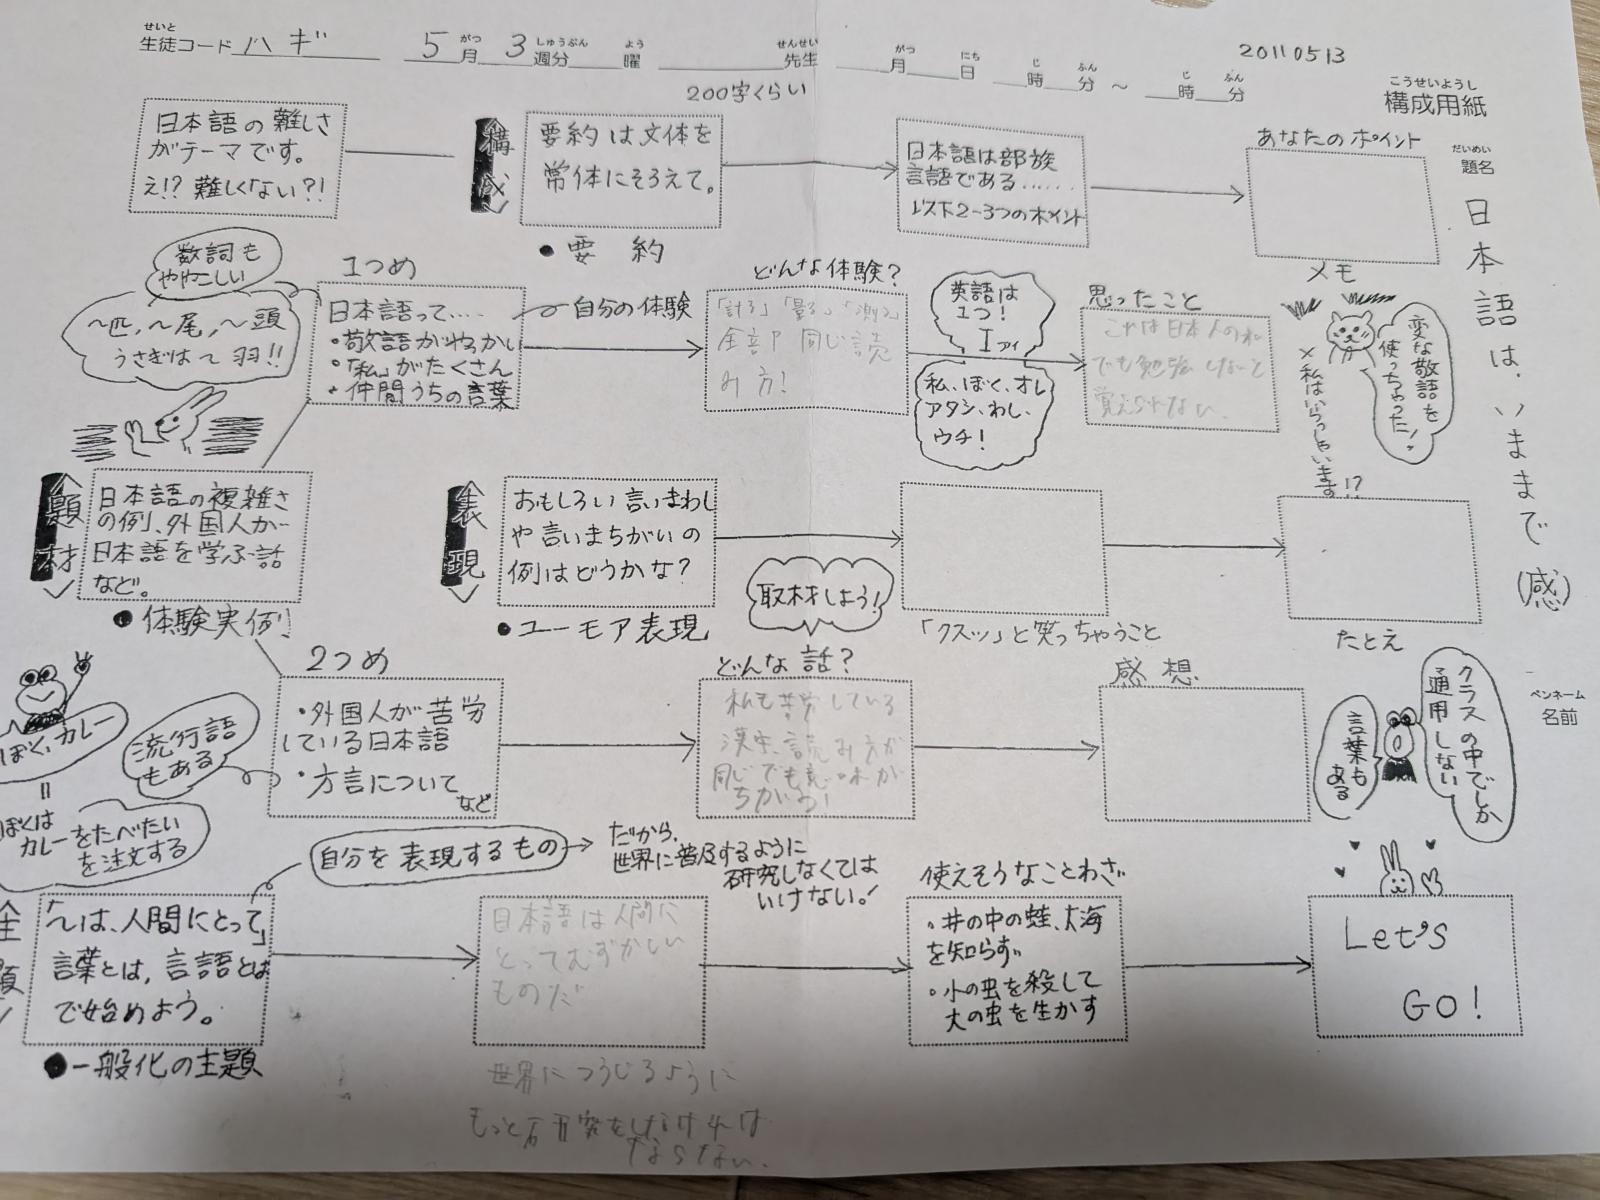 せいと
生徒コード ハギ
5 がつ 月 3 しゅうぶん 週分 よう 曜 せんせい 先生 がつ 月 にち 日 じ 時 ふん 分 ～ じ 時 ふん 分
20110513
こうせいようし
構成用紙
200字くらい
日本語の難しさ
がテーマです。
え!? 難しくない?!
構成
要約は文体を
常体にそろえて。
●要約
日本語は部族
言語である……
以下2-3つのポイント
あなたのポイント
だいめい
題名
日本語は、いままで(感)
数詞も
ややこしい
～匹、～尾、～頭
うさぎはで羽!!
1つめ
日本語って….
・敬語がやっかい
・「私」がたくさん
・仲間うちの言葉
自分の体験
どんな体験?
「計る」「量る」「測る」
全部同じ読
み方!
英語は
1つ!
I アイ
私、ぼく、オレ
アタシ、わし、
ウチ!
思ったこと
これは日本人のわ
でも勉強しないと
覚えられない.
メモ
変な敬語を
使っちゃった!
×私はいらっしゃいます!?
題材
日本語の複雑さ
の例、外国人が
日本語を学ぶ話
など。
●体験実例
表現
おもしろい言いまわし
や言いまちがいの
例はどうかな?
●ユーモア表現
取材しよう!
「クスッ」と笑っちゃうこと
たとえ
2つめ
・外国人が苦労
している日本語
・方言について
など
流行語
もある
ぼく、カレー
॥
ぼくは
カレーをたべたい
を注文する
どんな話?
私も苦労している
漢字、読み方が
同じでも意味が
ちがう!
感想
クラスの中でしか
通用しない
言葉も
ある
ペンネーム
名前
自分を表現するもの
だから、
世界に普及するように
研究しなくては
いけない!
主題
「～は、人間にとって」
言葉とは、言語とは
で始めよう。
●一般化の主題
日本語は人間に
とってむずかしい
ものだ
世界につうじるように
もっと研究をしなければ
ならない.
使えそうなことわざ
・井の中の蛙、大海
を知らず
・小の虫を殺して
大の虫を生かす
Let's
GO!